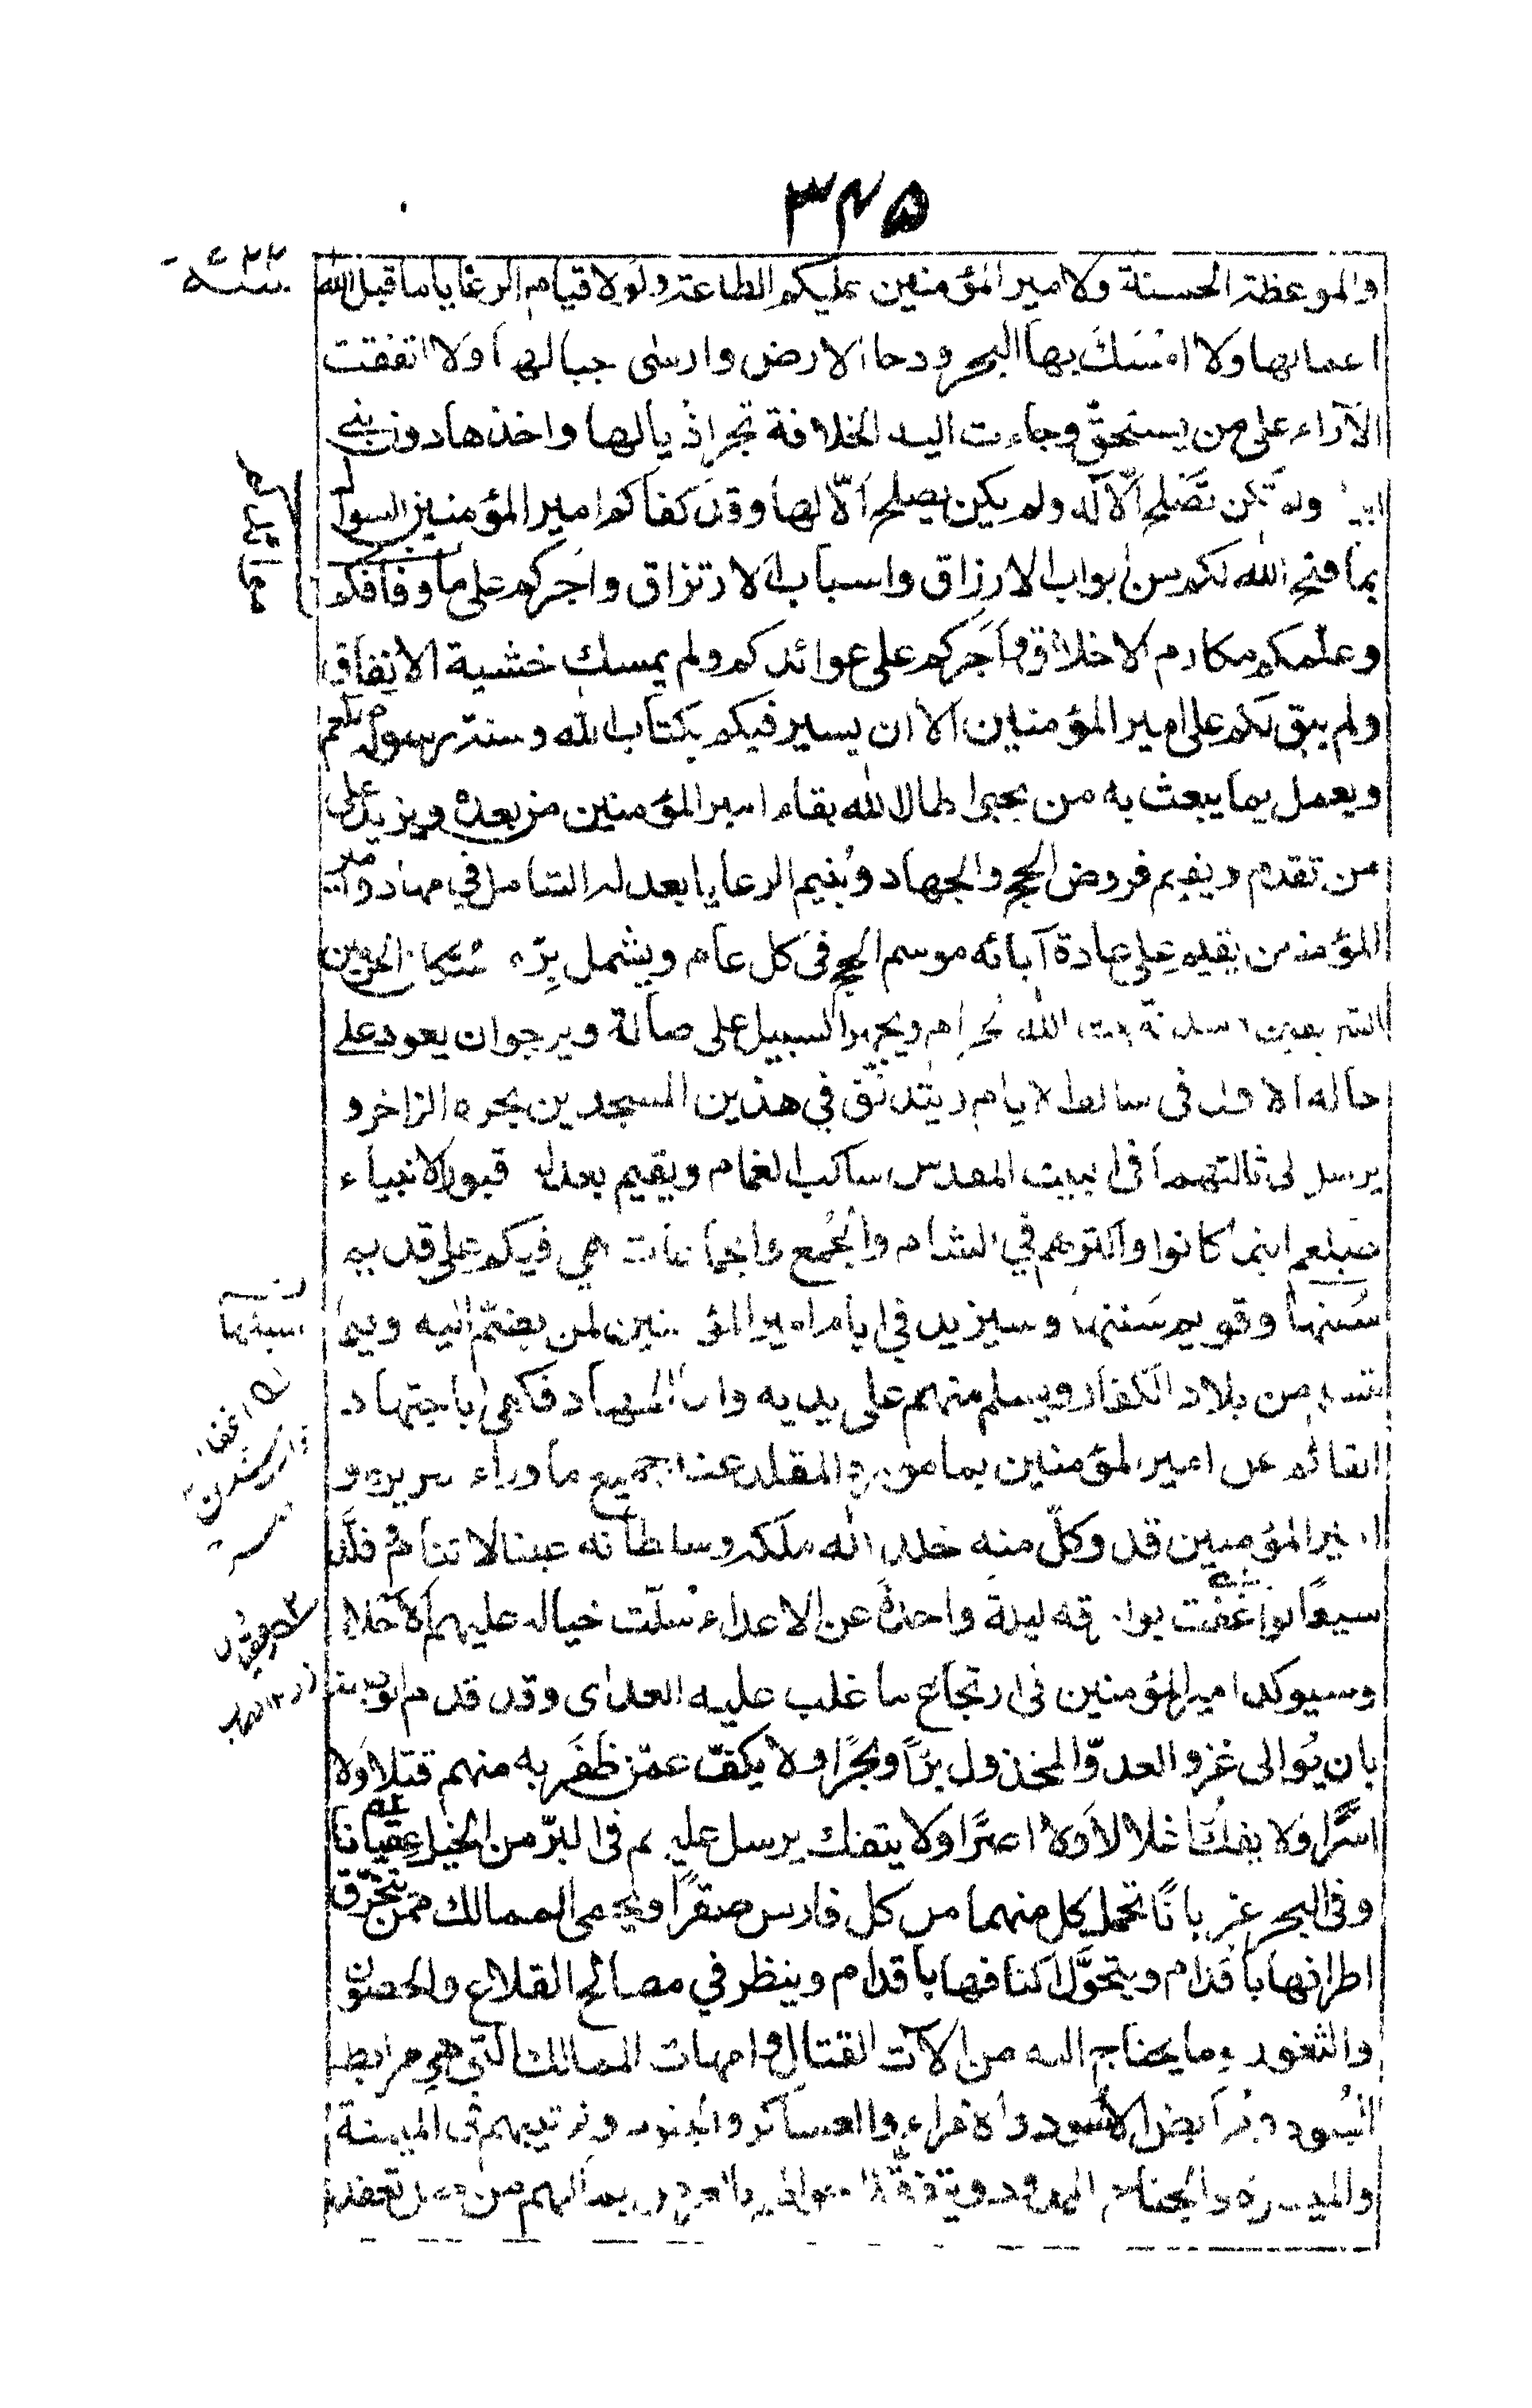 ٣٤٥
والموعظة الحسنة ولامير المؤمنين عليكم الطاعة ولولا قيام الرعايا ما قبل الله
اعمالها ولا امسك بها البحر ودحا الارض وارسى جبالها ولا اتفقت
الآراء على من يستحق وجاءت اليه الخلافة تجر اذيالها واخذها دون بني
ابيه ولم تكن تصلح الّا له ولم يكن يصلح الّا لها وقد كفاكم امير المؤمنين السوال
بما فتح الله لكم من ابواب الارزاق واسباب الارتزاق واجركم على ما وفاقكم
وعلمكم مكارم الاخلاق واجركم على عوائدكم ولم يمسك خشية الانفاق
ولم يبق لكم على امير المؤمنين الا ان يسير فيكم بكتاب الله وسنة رسوله صلعم
ويعمل بما يبعث به من يجئ اطال الله بقاء امير المؤمنين من بعده ويزيد على
من تقدم ويقيم فروض الحج والجهاد وينيم الرعايا بعدله الشامل في مهاد وامير
المؤمنين يقيم على عادة آبائه موسم الحج في كل عام ويشمل برّه سكان الحرمين
الشريفين وسدنة بيت الله الحرام ويجهز السبيل على ضالة ويرجو ان يعود على
حاله الاول في سالف الايام ويتدفق في هذين المسجدين بحره الزاخر و
يرسل الى ثالثهما في البيت المقدس ساكب الغمام ويقيم بعدله قبور الانبياء
صلعم اينما كانوا واكثرهم في الشام والجُمع والجماعات هي فيكم على قديم
سُننها وقويم سَننها وسيزيد في ايام امير المؤمنين لمن يضمّ اليه وبما
من بلاد الكفار ويسلم منهم على يديه واما الجهاد فكفى باجتهاد
القائم عن امير المؤمنين بمأموره والمقلد عنه جميع ما وراء سريره و
امير المؤمنين قد وكّل منه خلد الله ملكه وسلطانه عينا لا تنام وقلّد
سيفا لو اغفت بوارقه ليلة واحدة عن الاعداء سُلّت خياله عليهم الاحلام
وسيوكد امير المؤمنين في ارتجاع ما غلب عليه العدى وقد قدم الوصية
بان يُوالى غزو العدوّ المخذول برًّا وبحرًا ولا يكفّ عمّن ظفر به منهم قتلا ولا
اسرًا ولا يفكّ اغلالا ولا اصرًا ولا ينفك يرسل عليهم في البرّ من الخيل عقبانا
وفي البحر غربانًا تحمل كل منهما من كل فارس صقرًا ويحمى الممالك ممن يتخرق
اطرافها باقدام ويتحوّل اكنافها باقدام وينظر في مصالح القلاع والحصون
والثغور وما يحتاج اليه من آلات القتال وامهات الممالك التي هي مرابط
البنود ومرابض الاسود والامراء والعساكر والجنود وترتيبهم في الميمنة
والميسرة والجناح الممدود